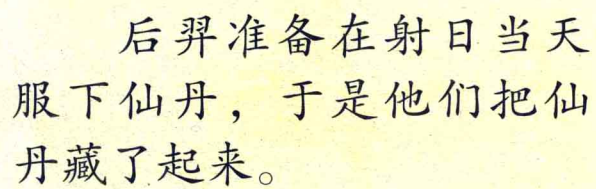 后羿准备在射日当天
服下仙丹，于是他们把仙
丹藏了起来。